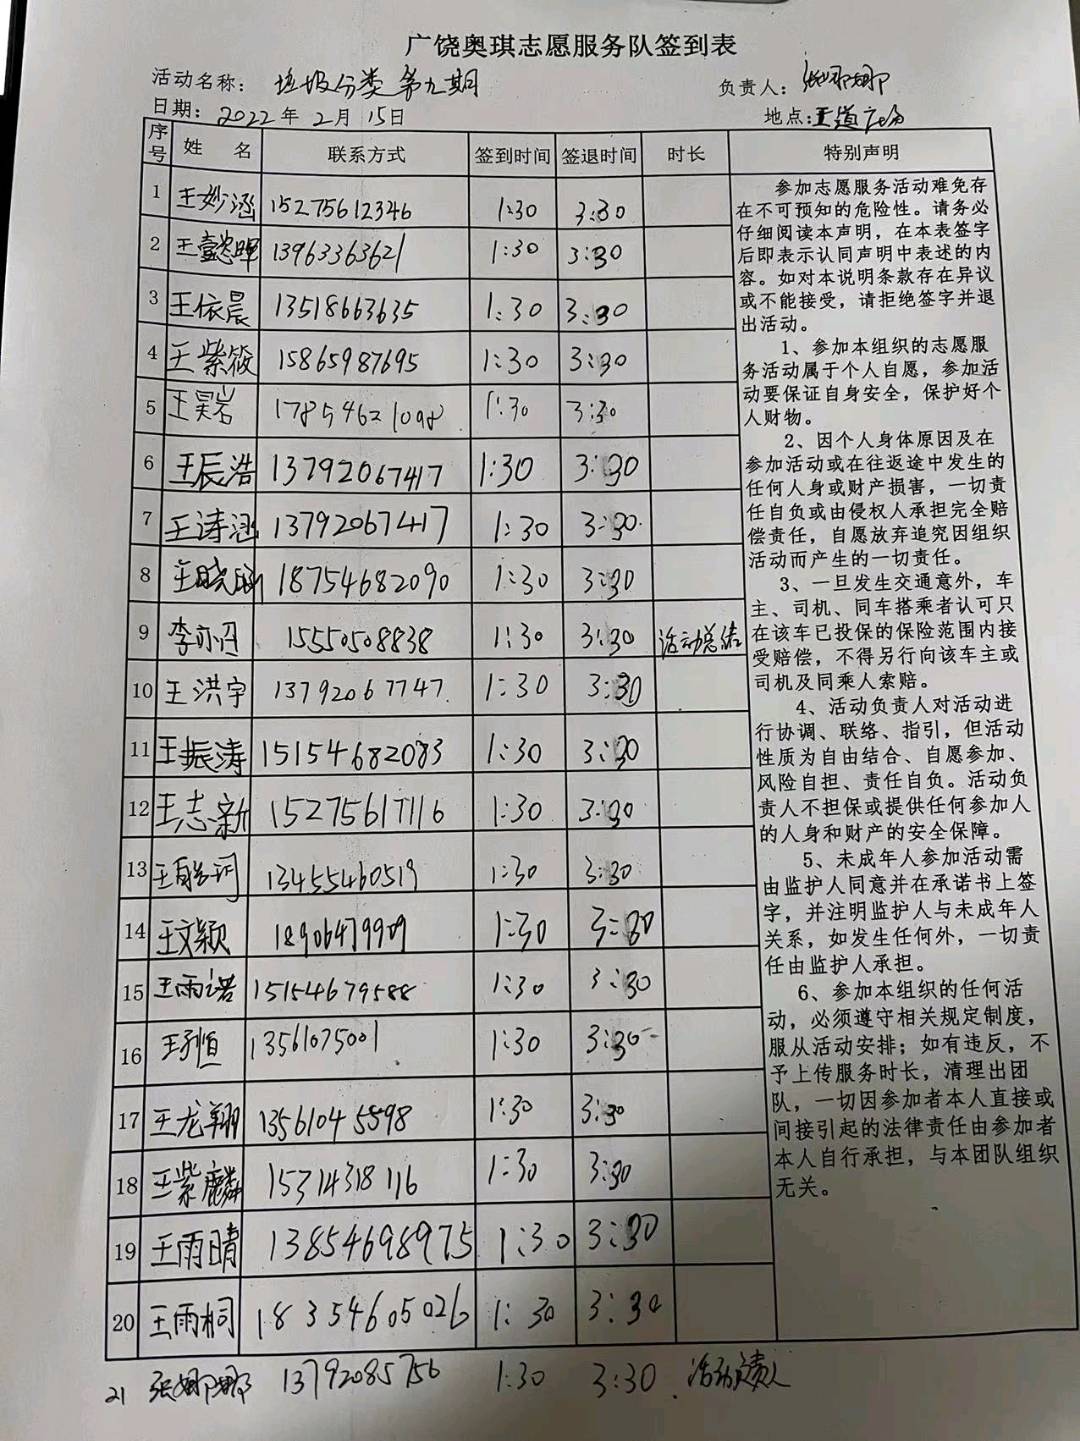 广饶奥琪志愿服务队签到表
活动名称： 垃圾分类第九期 负责人： 张娜娜
日期： 2022年2月15日 地点：王道广场
序号 姓 名 联系方式 签到时间 签退时间 时长 特别声明
1 王妙涵 15275612346 1:30 3:30
2 王懿晖 13963363621 1:30 3:30
3 王依晨 13518663635 1:30 3:30
4 王紫筱 15865987695 1:30 3:30
5 王昊岩 17854621098 1:30 3:30
6 王辰浩 13792067417 1:30 3:30
7 王涛涵 13792067417 1:30 3:30
8 王晓 18754682090 1:30 3:30
9 李 15550508838 1:30 3:30 活动总结
10 王洪宇 13792067747 1:30 3:30
11 王振涛 15154682083 1:30 3:30
12 王志新 15275617116 1:30 3:30
13 王 珂 13455460519 1:30 3:30
14 王文颖 18906479909 1:30 3:30
15 王雨诺 15154679588 1:30 3:30
16 王子恒 13561075001 1:30 3:30
17 王龙翔 13561045598 1:30 3:30
18 王紫麟 15314318116 1:30 3:30
19 王雨晴 13854698975 1:30 3:30
20 王雨桐 18354605026 1:30 3:30
21 张娜娜 13792085756 1:30 3:30 活动负责人
参加志愿服务活动难免存
在不可预知的危险性。请务必
仔细阅读本声明，在本表签字
后即表示认同声明中表述的内
容。如对本说明条款存在异议
或不能接受，请拒绝签字并退
出活动。
1、参加本组织的志愿服
务活动属于个人自愿，参加活
动要保证自身安全，保护好个
人财物。
2、因个人身体原因及在
参加活动或在往返途中发生的
任何人身或财产损害，一切责
任自负或由侵权人承担完全赔
偿责任，自愿放弃追究因组织
活动而产生的一切责任。
3、一旦发生交通意外，车
主、司机、同车搭乘者认可只
在该车已投保的保险范围内接
受赔偿，不得另行向该车主或
司机及同乘人索赔。
4、活动负责人对活动进
行协调、联络、指引，但活动
性质为自由结合、自愿参加、
风险自担、责任自负。活动负
责人不担保或提供任何参加人
的人身和财产的安全保障。
5、未成年人参加活动需
由监护人同意并在承诺书上签
字，并注明监护人与未成年人
关系，如发生任何外，一切责
任由监护人承担。
6、参加本组织的任何活
动，必须遵守相关规定制度，
服从活动安排；如有违反，不
予上传服务时长，清理出团
队，一切因参加者本人直接或
间接引起的法律责任由参加者
本人自行承担，与本团队组织
无关。